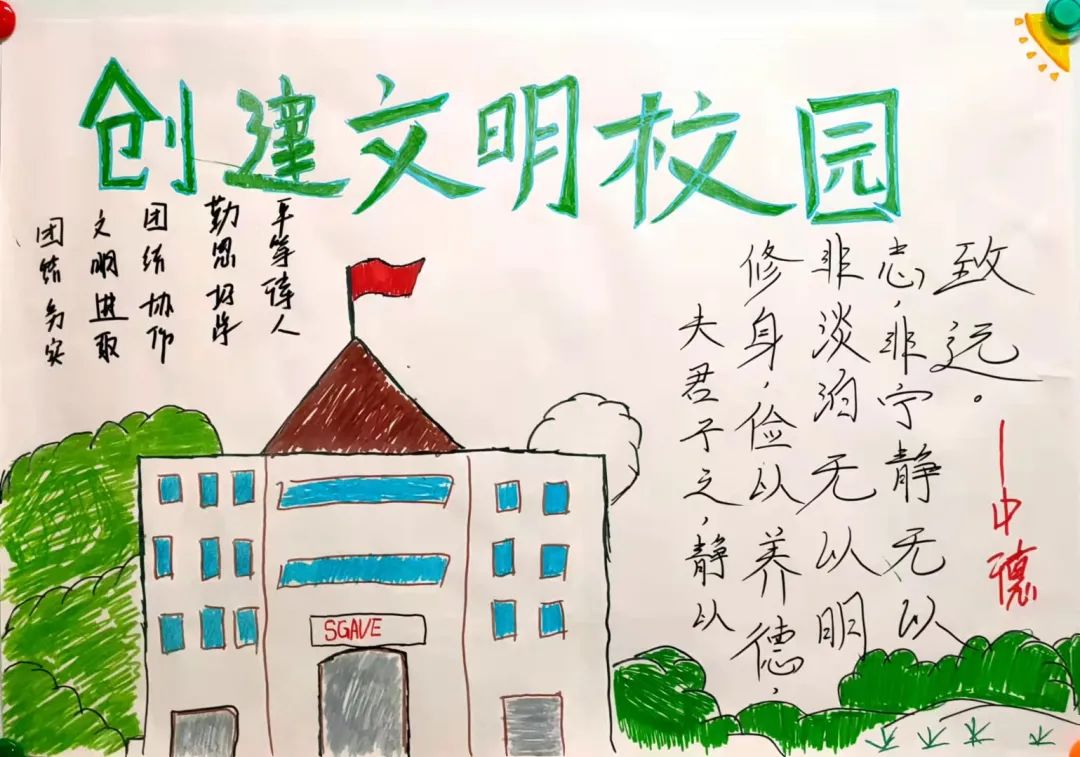 创建文明校园
团结务实
文明进取
团结协作
勤思好学
平等待人
夫君子之,静以
修身,俭以养德,
非淡泊无以明
志,非宁静无以
致远。
—中德
SGAVE